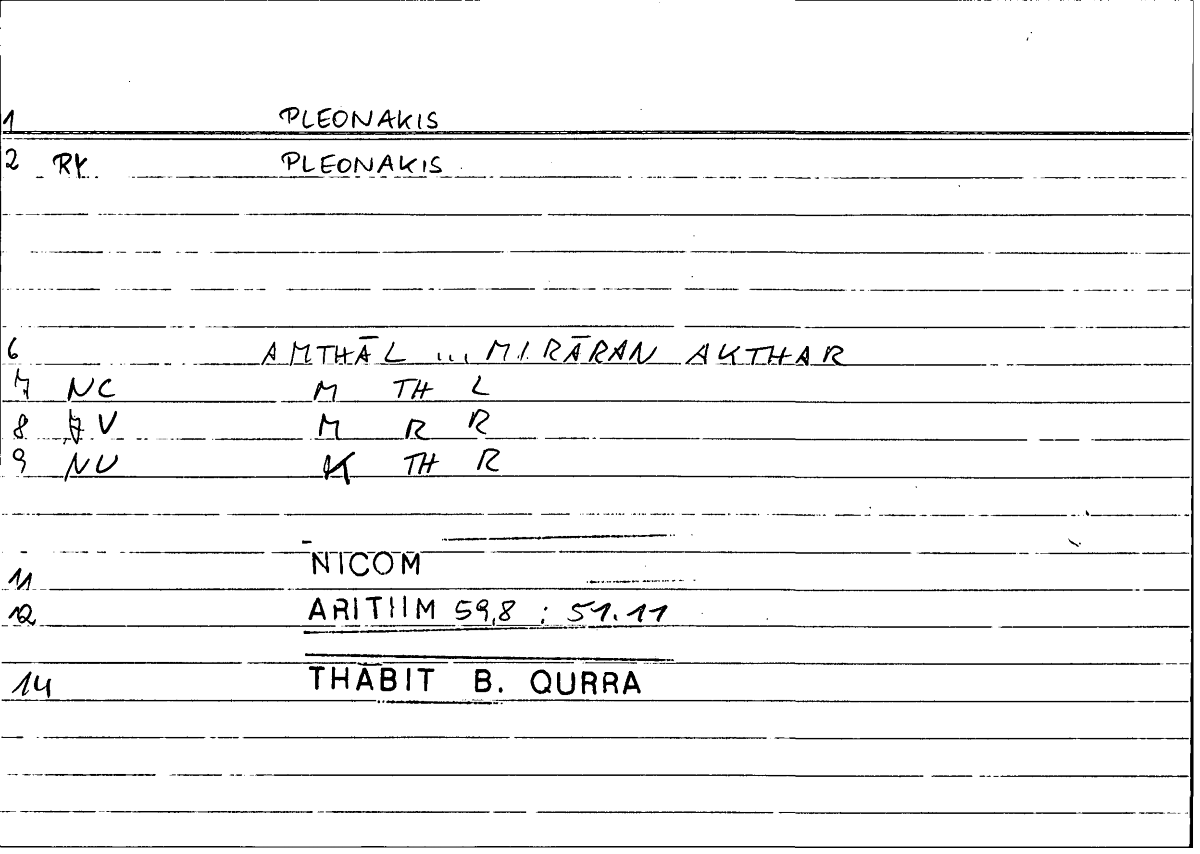 1 PLEONAKIS
2 RK PLEONAKIS
6 AMTHĀL ... MIRĀRAN AKTHAR
7 NC M TH L
8 V M R R
9 NU K TH R
11 NICOM
12 ARITHM 59,8 : 51.11
14 THĀBIT B. QURRA